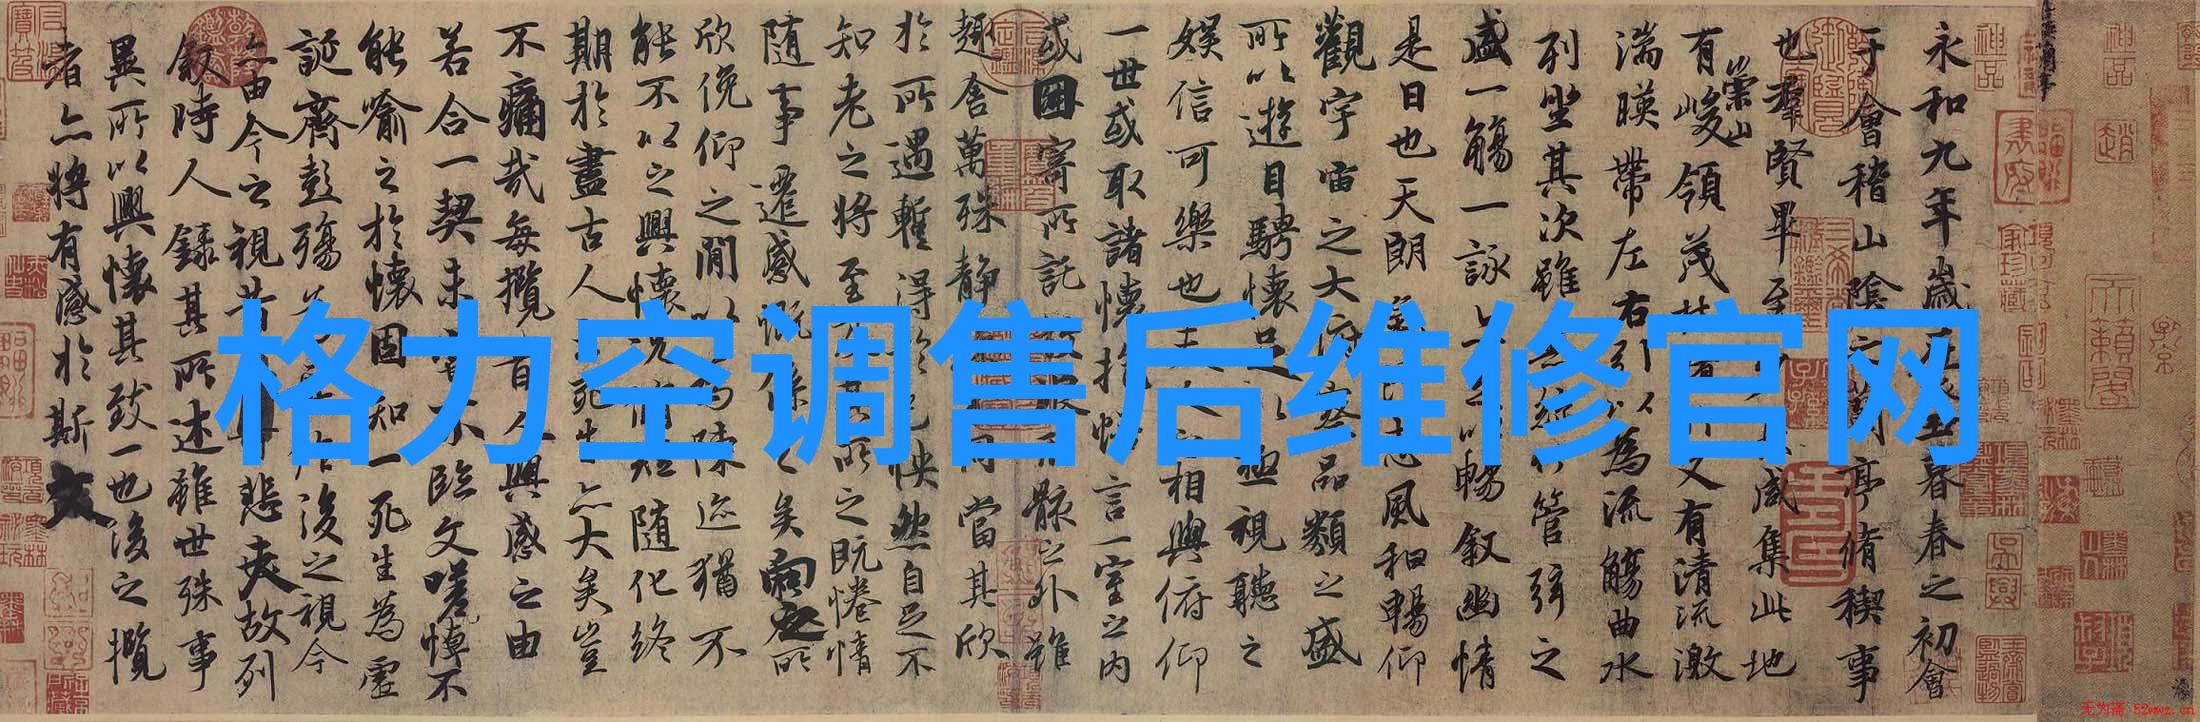 永和九年歲在癸丑暮春之初會
于會稽山陰之蘭亭脩稧事
也群賢畢至少長咸集此地
有崇山峻領茂林脩竹又有清流激
湍暎帶左右引以為流觴曲水
列坐其次雖無絲竹管弦之
盛一觴一詠亦足以暢敘幽情
是日也天朗氣清惠風和暢仰
觀宇宙之大俯察品類之盛
所以遊目騁懷足以極視聽之
娛信可樂也夫人之相與俯仰
一世或取諸懷抱悟言一室之內
或因寄所託放浪形骸之外雖
趣舍萬殊靜躁不同當其欣
於所遇暫得於己怏然自足不
知老之將至及其所之既惓情
隨事遷感慨係之矣向之所
欣俛仰之間以為陳迹猶不
能不以之興懷況脩短隨化終
期於盡古人云死生亦大矣豈
不痛哉每攬昔人興感之由
若合一契未嘗不臨文嗟悼不
能喻之於懷固知一死生為虛
誕齊彭殤為妄作後之視今
亦由今之視昔悲夫故列
敘時人錄其所述雖世殊事
異所以興懷其致一也後之攬
者亦將有感於斯文
格力空调售后维修官网
神品
无为斋 52wwz.cn